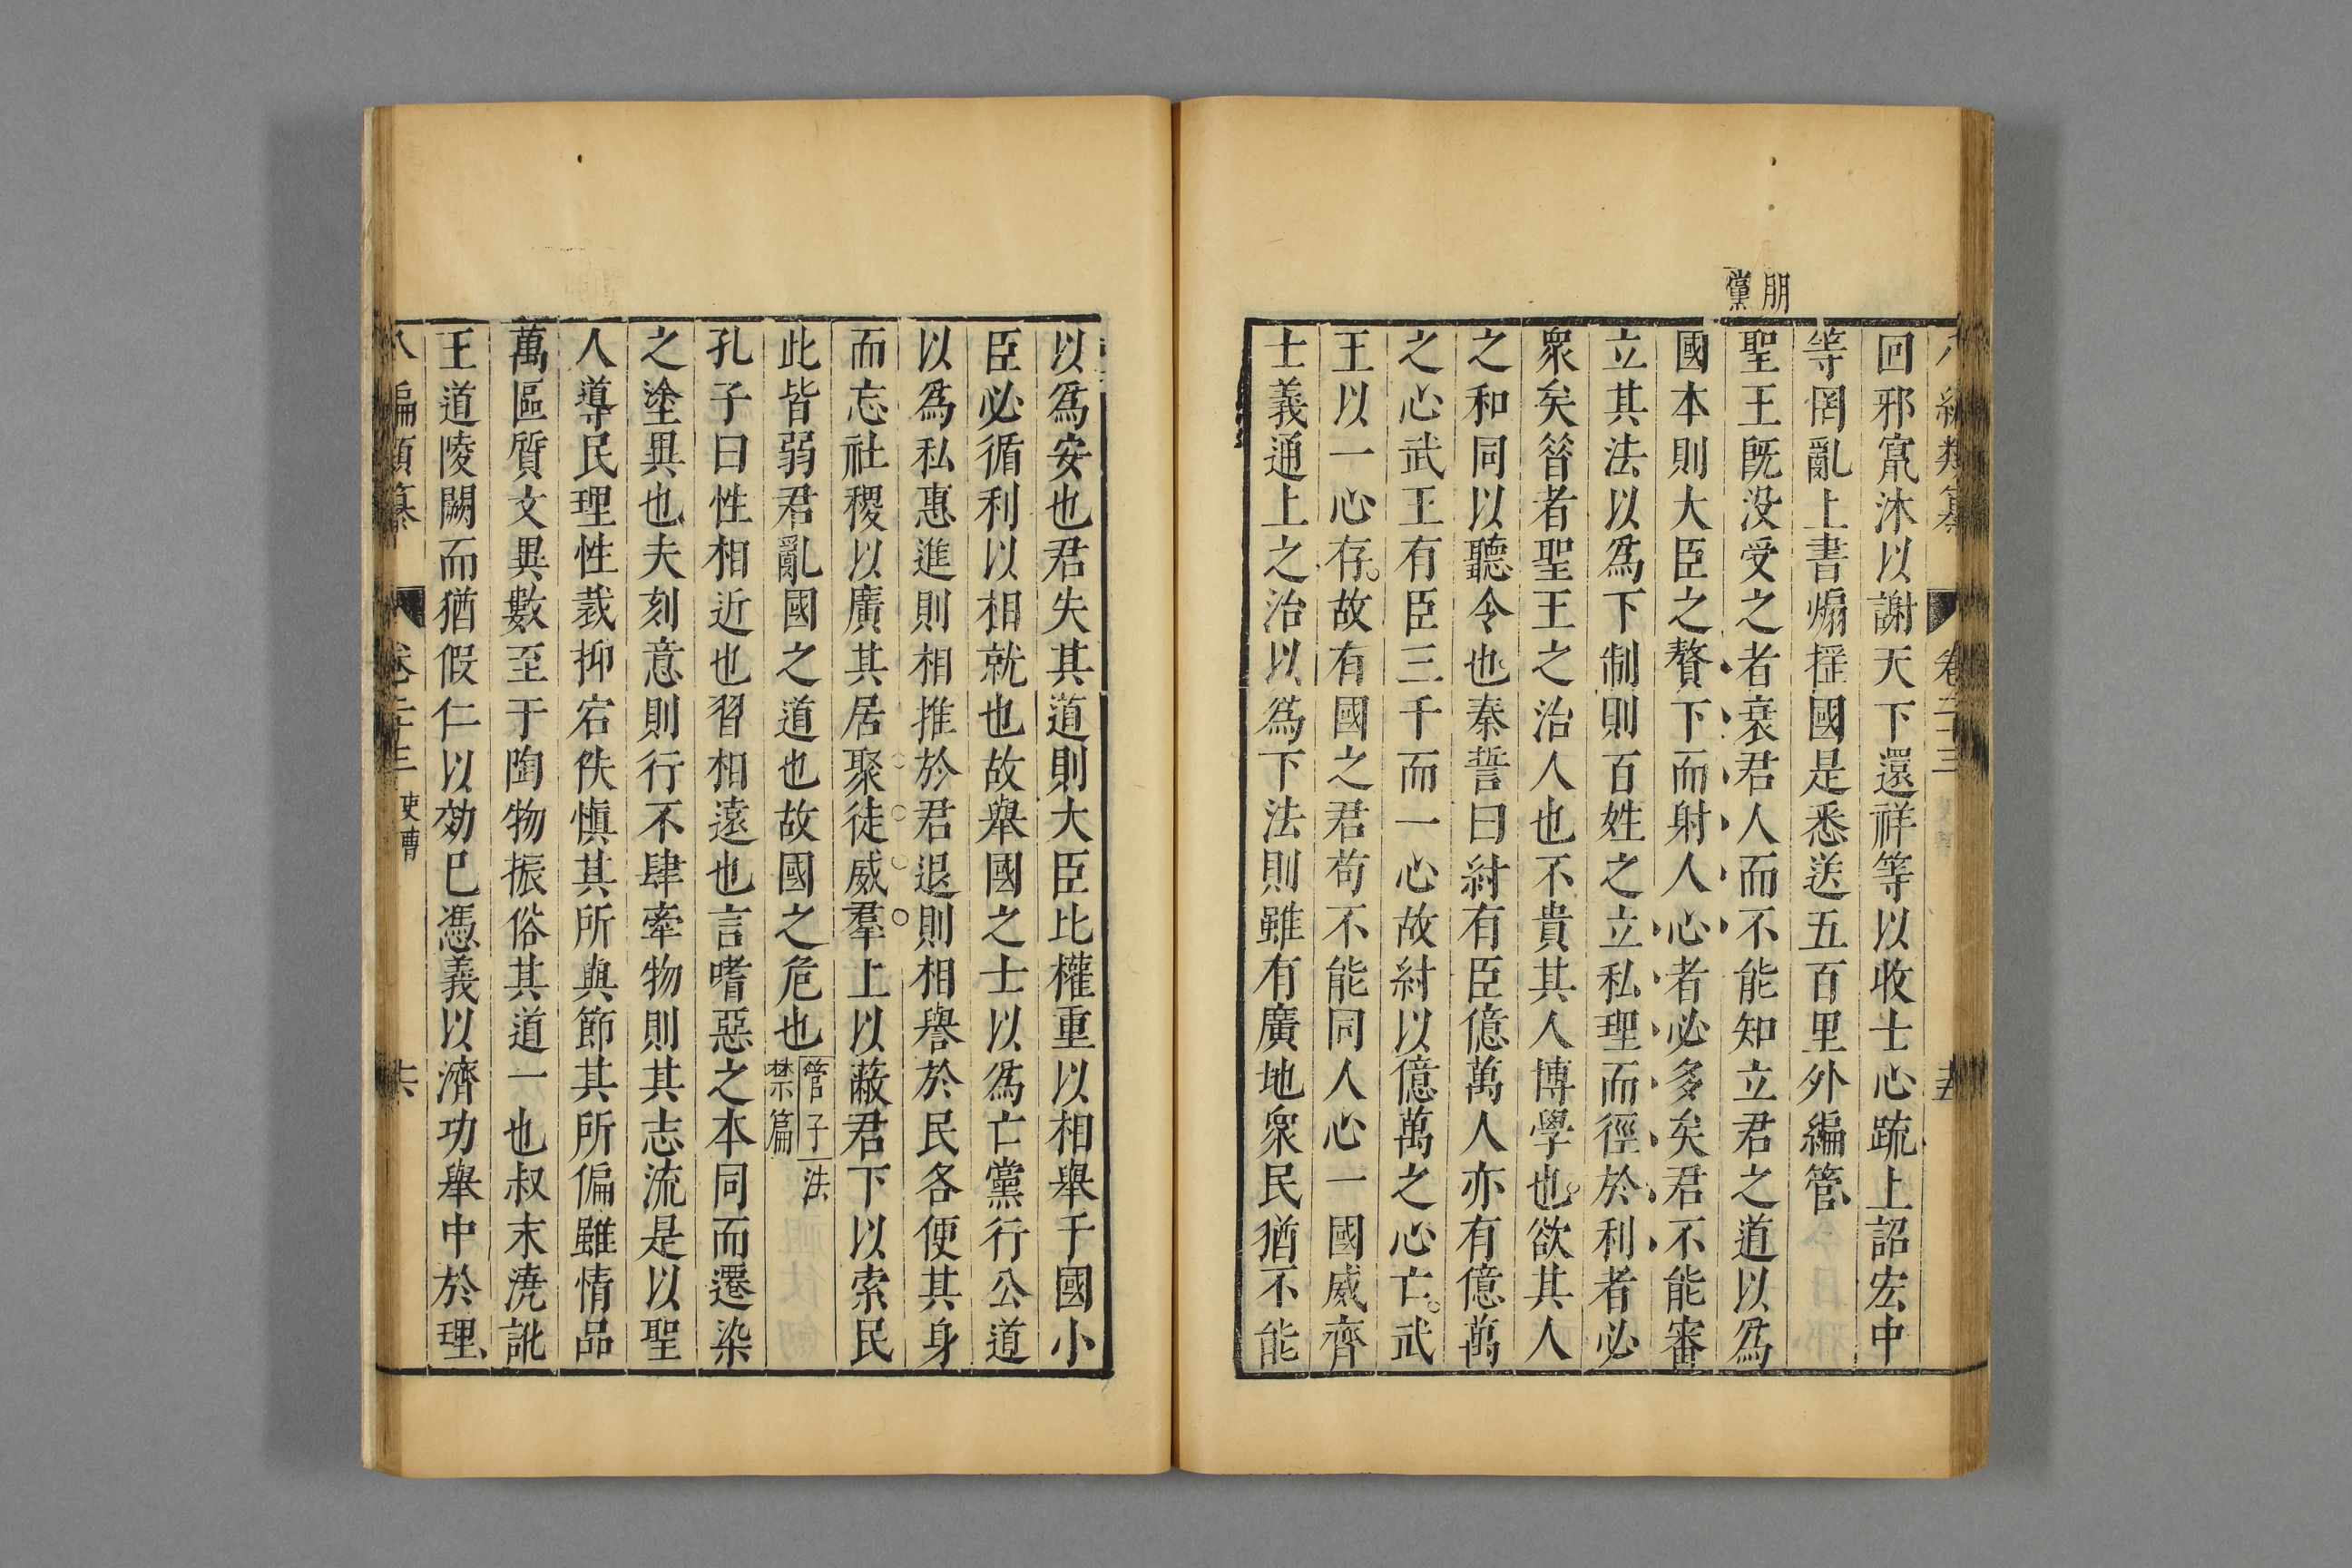 八編類纂 卷二十三 五
回邪竄沐以謝天下還祥等以收士心疏上詔宏中
等罔亂上書煽揺國是悉送五百里外編管
朋黨
聖王既没受之者衰君人而不能知立君之道以爲
國本則大臣之贅下而射人心者必多矣君不能審
立其法以爲下制則百姓之立私理而徑於利者必
衆矣昝者聖王之治人也不貴其人博學也欲其人
之和同以聽令也秦誓曰紂有臣億萬人亦有億萬
之心武王有臣三千而一心故紂以億萬之心亡武
王以一心存故有國之君苟不能同人心一國威齊
士義通上之治以爲下法則雖有廣地衆民猶不能
以爲安也君失其道則大臣比權重以相舉于國小
臣必循利以相就也故舉國之士以爲亡黨行公道
以爲私惠進則相推於君退則相譽於民各便其身
而忘社稷以廣其居聚徒威羣上以蔽君下以索民
此皆弱君亂國之道也故國之危也管子法禁篇
孔子曰性相近也習相遠也言嗜惡之本同而遷染
之塗異也夫刻意則行不肆牽物則其志流是以聖
人導民理性裁抑宕佚愼其所與節其所偏雖情品
萬區質文異數至于陶物振俗其道一也叔末澆訛
王道陵闕而猶假仁以効巳憑義以濟功舉中於理
八編類纂 卷二十三 吏曹 六